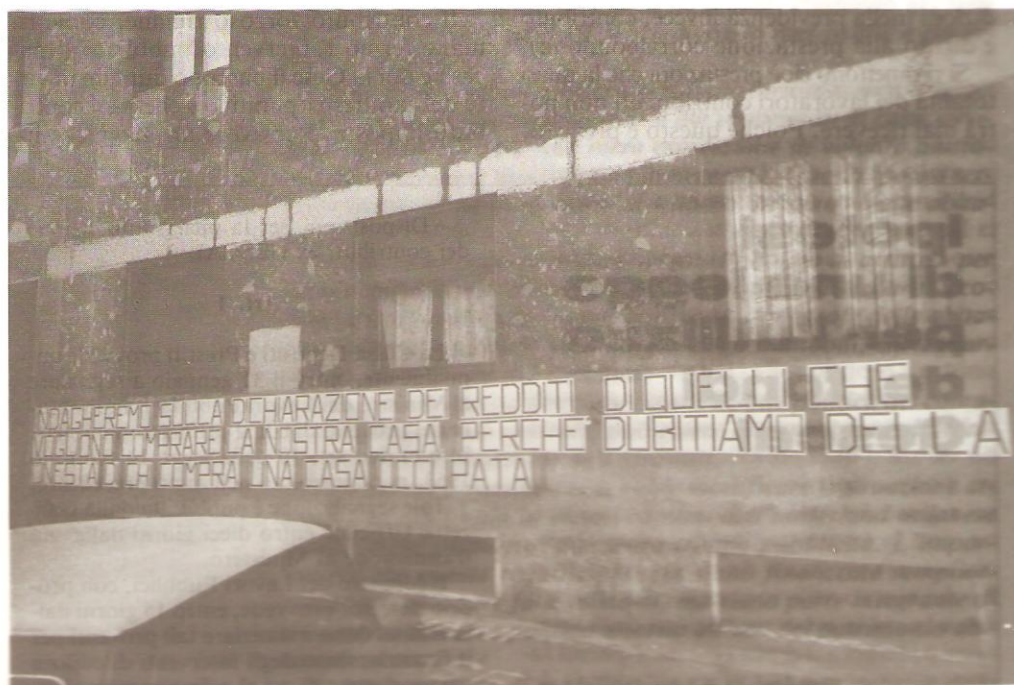 INDAGHEREMO SULLA DICHIARAZIONE DEI REDDITI DI QUELLI CHE
VOGLIONO COMPRARE LA NOSTRA CASA PERCHE' DUBITIAMO DELLA
ONESTA DI CHI COMPRA UNA CASA OCCUPATA